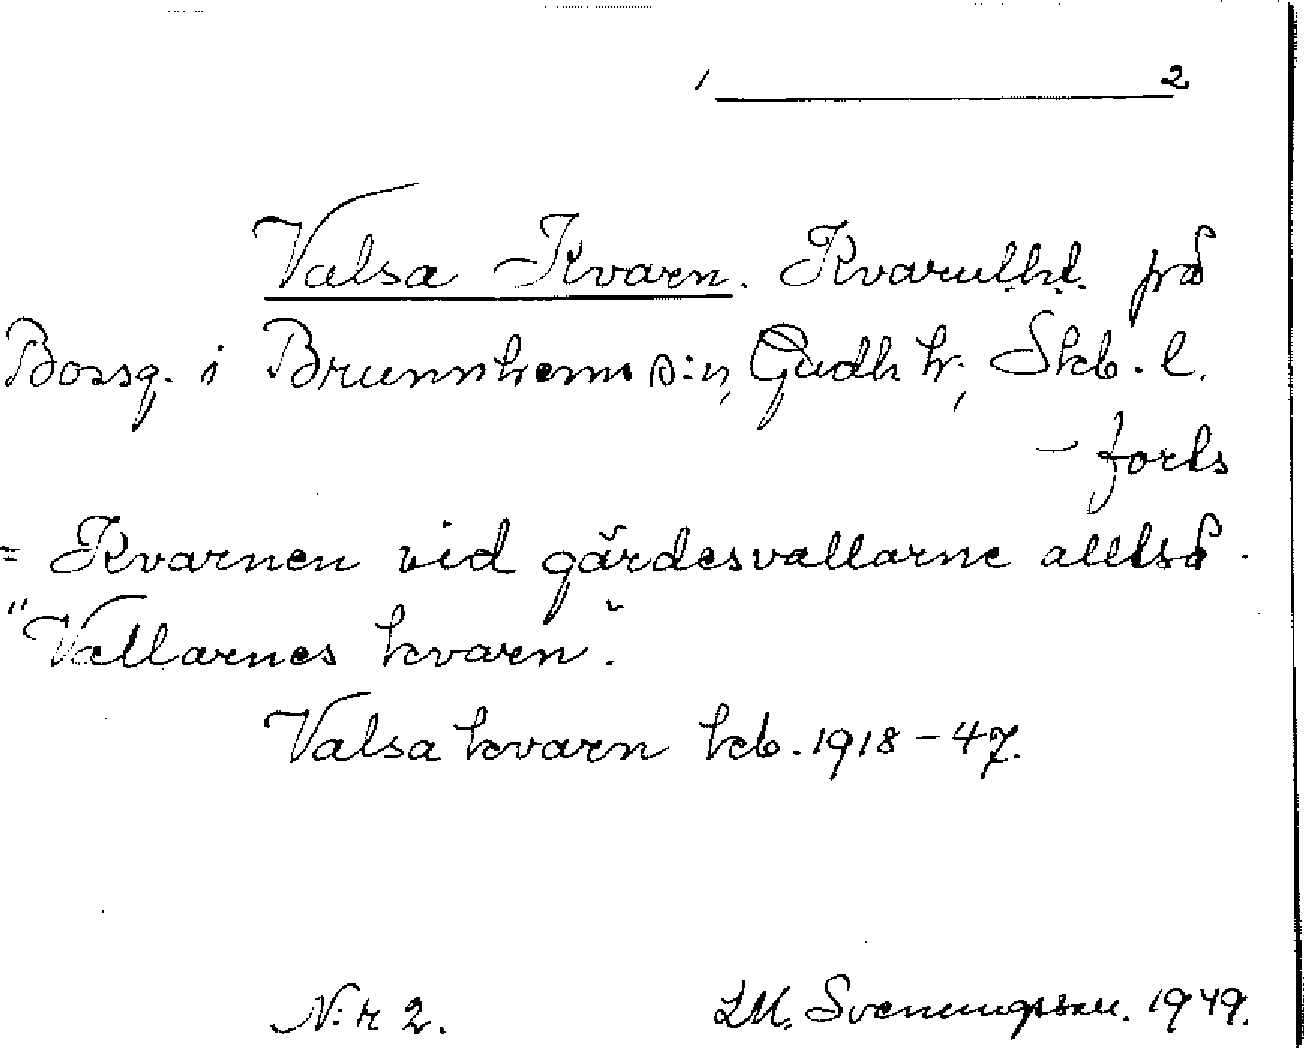 1 2
Valsa Kvarn. Kvarullht. på
Bossg. i Brunnhems s:n, Gudh. hr, Skb. l.
- forts
= Kvarnen vid gärdesvallarne alltså
"Vallarnes kvarn".
Valsa kvarn kb. 1918-47.
N:r 2. LM. Svenungsson. 1949.